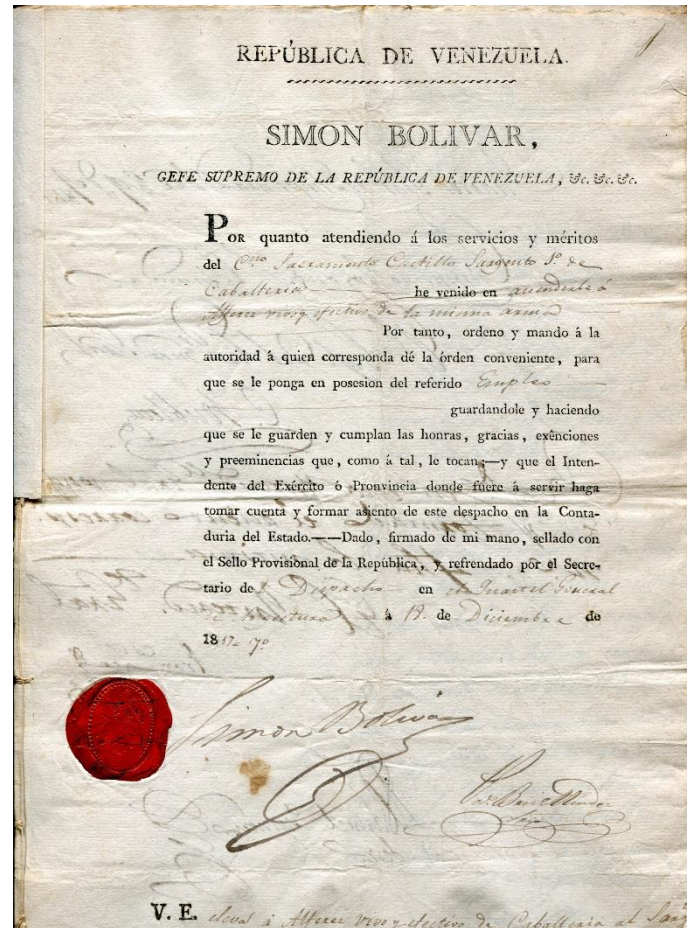 1
REPÚBLICA DE VENEZUELA.
SIMON BOLIVAR,
GEFE SUPREMO DE LA REPÚBLICA DE VENEZUELA, &c. &c. &c.
POR quanto atendiendo á los servicios y méritos
del C.no Sacramento Castillo Sargento 1.º de
Caballeria he venido en ascenderle á
Alferez vivo y efectivo de la misma arma
Por tanto, ordeno y mando á la
autoridad á quien corresponda dé la órden conveniente, para
que se le ponga en posesion del referido Empleo
guardandole y haciendo
que se le guarden y cumplan las honras, gracias, exênciones
y preeminencias que, como á tal, le tocan;—y que el Inten-
dente del Exército ó Pronvincia donde fuere á servir haga
tomar cuenta y formar asiento de este despacho en la Conta-
duria del Estado.——Dado, firmado de mi mano, sellado con
el Sello Provisional de la República, y refrendado por el Secre-
tario de Despacho en el Quartel General
á 18. de Diciembre de
1817. 7º
Simon Bolivar
V. E. eleva á Alferez vivo y efectivo de Caballeria al Sarg